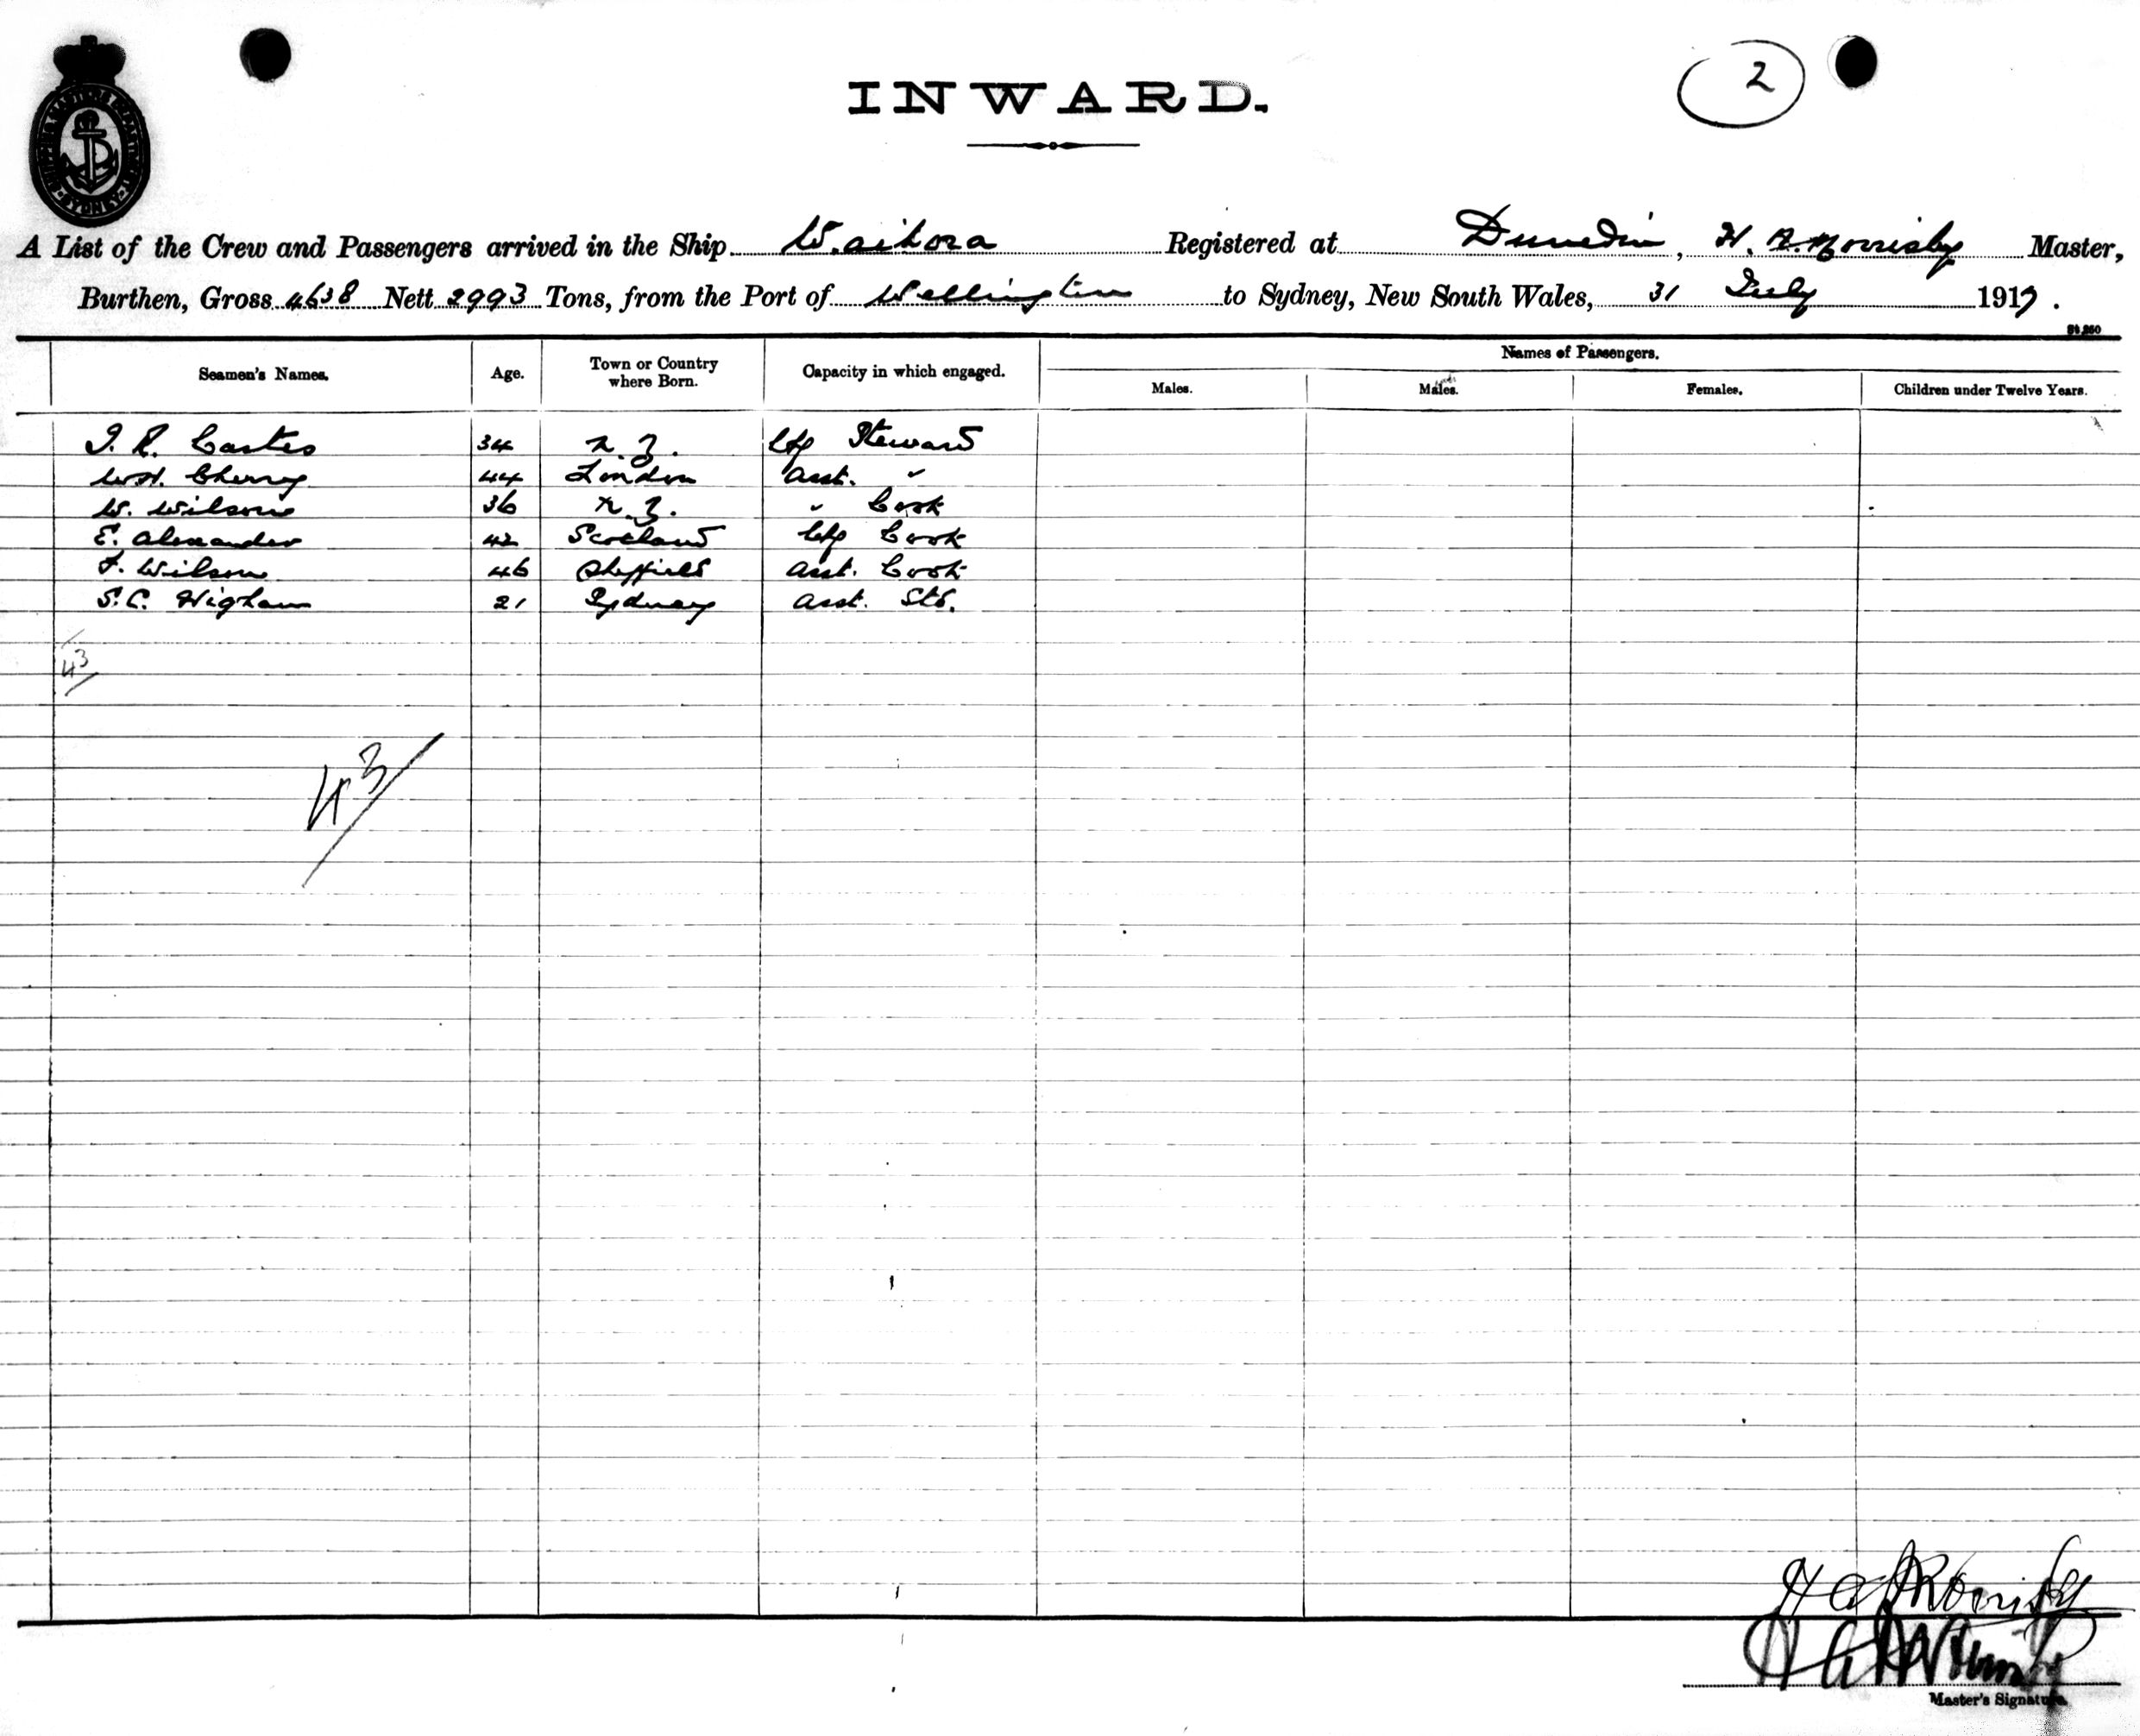 2
INWARD.
SHIPPING MASTER'S DEPARTMENT SYDNEY
A List of the Crew and Passengers arrived in the Ship Waihora Registered at Dunedin, H. A. Morrisby Master,
Burthen, Gross 4638 Nett 2993 Tons, from the Port of Wellington to Sydney, New South Wales, 31 July 1917.
Seamen's Names. Age. Town or Country where Born. Capacity in which engaged. Names of Passengers.
Males. Males. Females. Children under Twelve Years.
34 N.Z. Chf Steward
W.H. Cherry 44 London Asst. "
W. Wilson 36 N.Z. " Cook
E. Alexander 42 Scotland Chf Cook
F. Wilson 46 Sheffield Asst. Cook
S.C. Higham 21 Sydney Asst. Std.
43
43
H A Morrisby
H A Morrisby
Master's Signature.